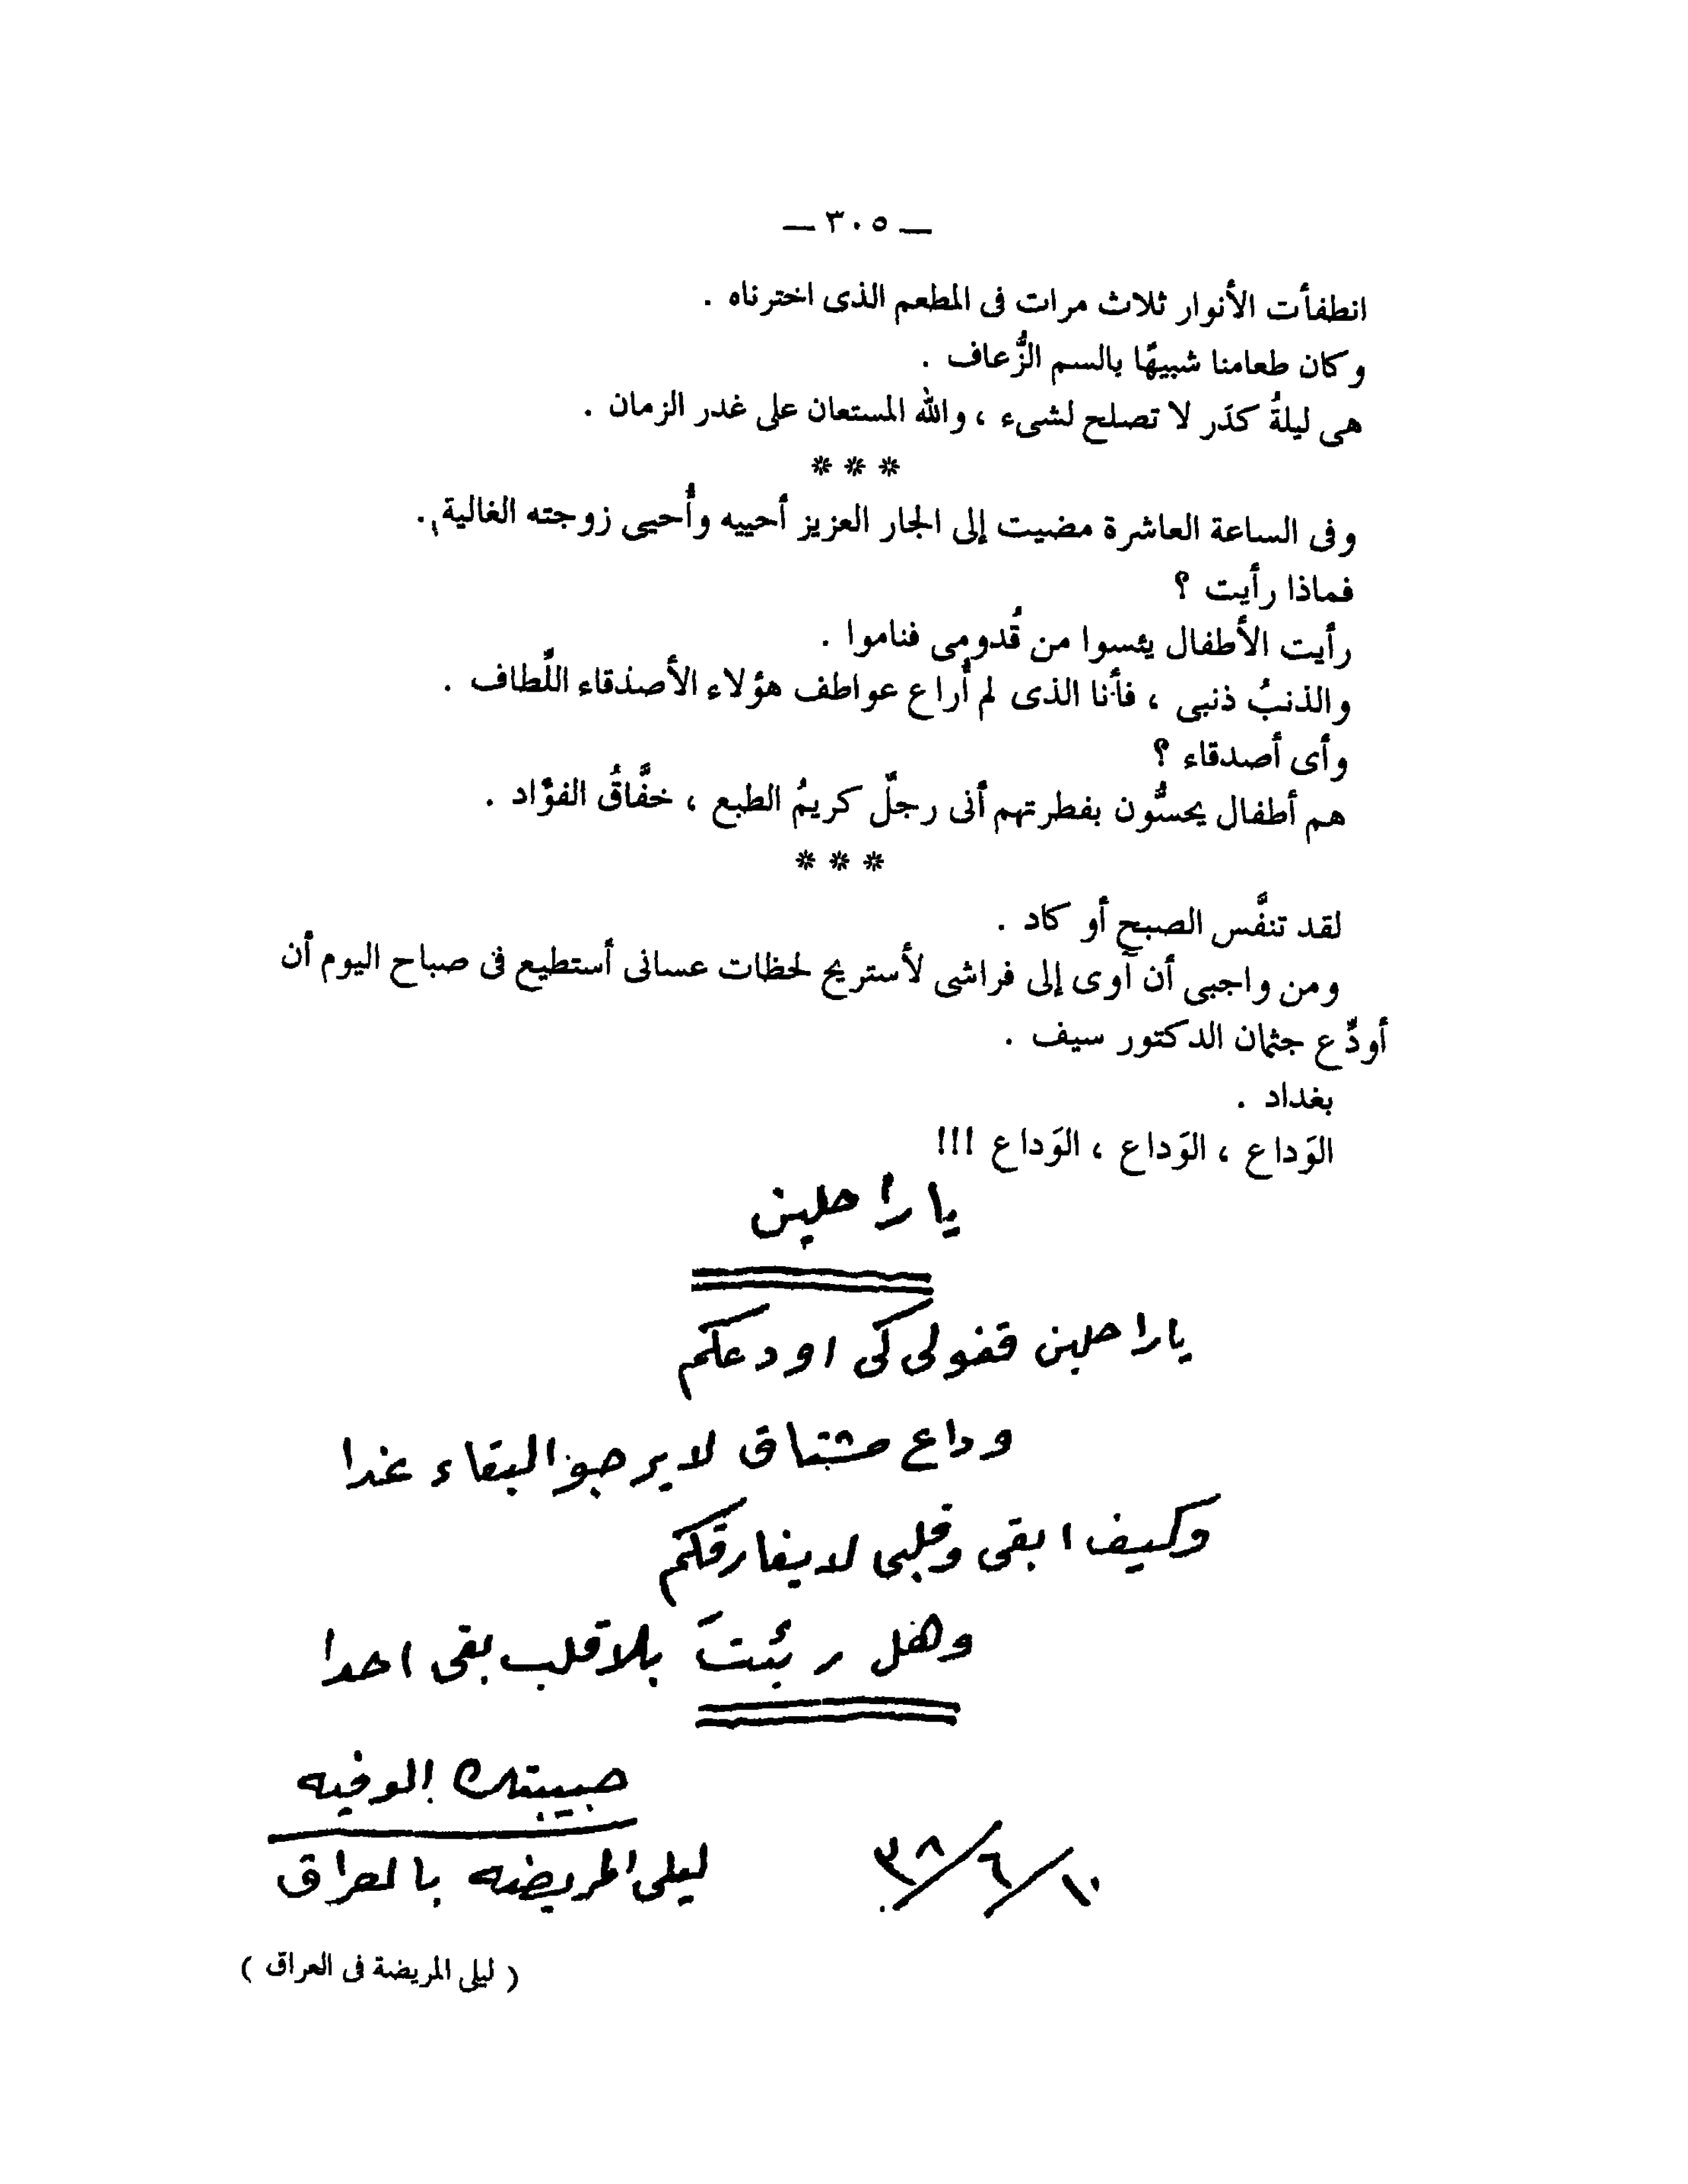 — ٣٠٥ —
انطفأت الأنوار ثلاث مرات فى المطعم الذى اخترناه .
وكان طعامنا شبيهًا بالسم الزُّعاف .
هى ليلةُ كدَر لا تصلح لشىء ، والله المستعان على غدر الزمان .
* * *
وفى الساعة العاشرة مضيت إلى الجار العزيز أحييه وأُحيى زوجته الغالية .
فماذا رأيت ؟
رأيت الأطفال يئسوا من قُدومى فناموا .
والذنبُ ذنبى ، فأنا الذى لم أُراع عواطف هؤلاء الأصدقاء اللِّطاف .
وأى أصدقاء ؟
هم أطفال يحسُّون بفطرتهم أنى رجلٌ كريمُ الطبع ، خفَّاقُ الفؤاد .
* * *
لقد تنفَّس الصبح أو كاد .
ومن واجبى أن آوى إلى فراشى لأستريح لحظات عسانى أستطيع فى صباح اليوم أن
أودِّع جثمان الدكتور سيف .
بغداد .
الوَداع ، الوَداع ، الوَداع !!!
يا راحلين
يا راحلين قفولى كى اودعكم
وداع مشتاق لا يرجو البقاء غدا
وكيف ابقى وقلبى لا يفارقكم
وهل رئيتَ بلا قلب بقى احدا
حبيبتك الوفيه
ليلى المريضه بالعراق
١٠/٦/٣٨
( ليلى المريضة فى العراق )